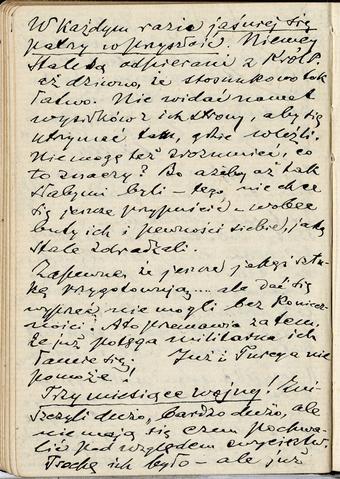 W każdym razie jaśniej się
patrzy w przyszłość. Niemcy
stale są odpierani z Król. P.
aż dziwno, że stosunkowo tak
łatwo. Nie widać nawet
wysiłków z ich strony, aby się
utrzymać tam, gdzie wleźli.
Nie mogę też zrozumieć, co
to znaczy? Bo ażeby aż tak
słabymi byli – tego nie chce
się jeszcze przypuścić – wobec
buty ich i pewności siebie, jaką
stale zdradzali.
Zapewne, że jeszcze jakąś sztu-
kę przygotowują... ale dać się
wyprzeć nie mogli bez koniecz-
ności! A to przemawia za tem,
że już potęga militarna ich
łamie się. Już i Turcya nie
pomoże!
Trzy miesiące wojny! Zni-
szczyli dużo, bardzo dużo, ale
nie mają się czem pochwa-
lić pod względem zwycięstw.
Trochę ich było – ale już